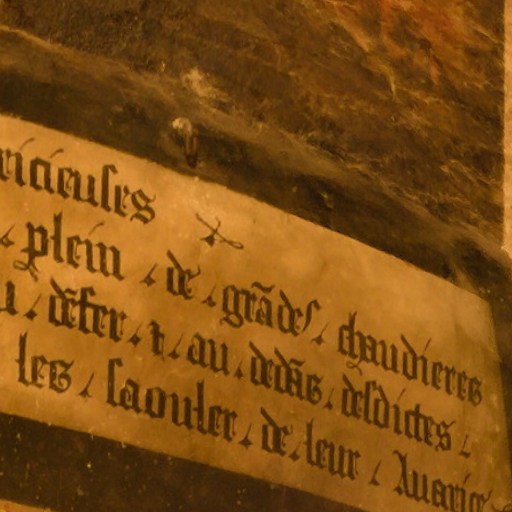 ricieuses
plein de grãdes chaudieres
dẽfer ⁊ au dedãs desdictes
les saouler de leur Auarice